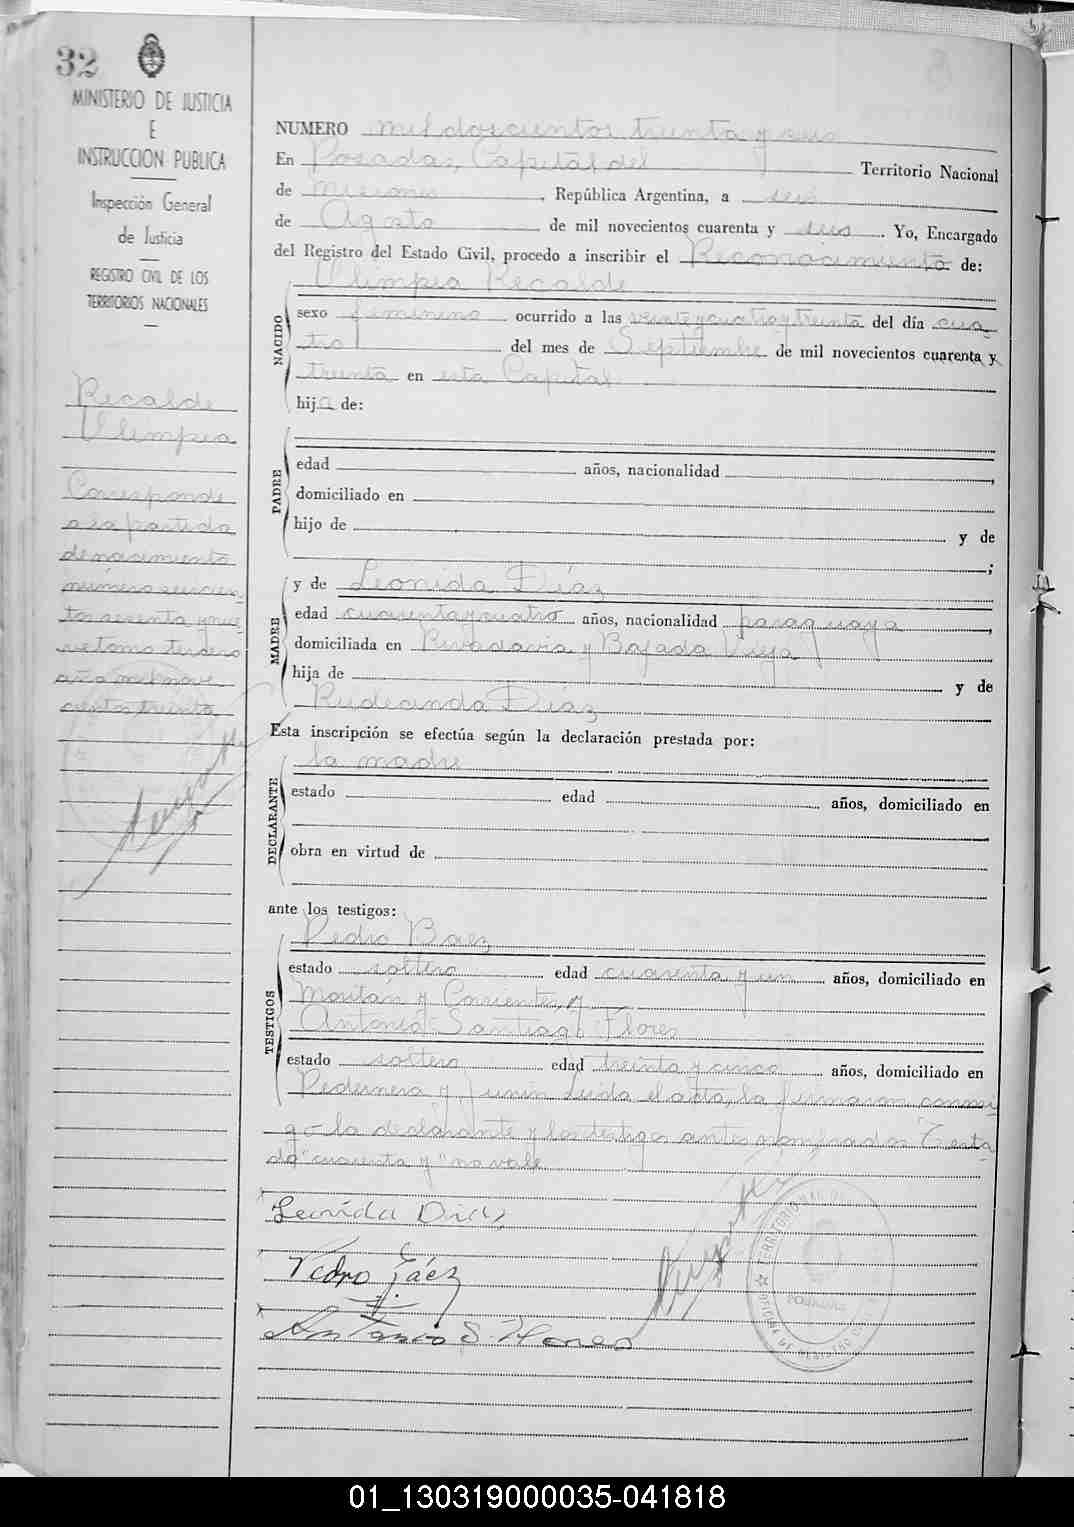 32
MINISTERIO DE JUSTICIA
E
INSTRUCCION PUBLICA
Inspección General
de Justicia
REGISTRO CIVIL DE LOS
TERRITORIOS NACIONALES
Recalde
Ulimpia
Corresponde
a la partida
de nacimiento
número seiscien-
tos nueve
tomo tercero
año mil nove
cientos treinta
NUMERO mil doscientos treinta y seis
En Posadas, Capital del Territorio Nacional
de Misiones, República Argentina, a seis
de Agosto de mil novecientos cuarenta y seis. Yo, Encargado
del Registro del Estado Civil, procedo a inscribir el Reconocimiento de:
Ulimpia Recalde
NACIDO
sexo femenino ocurrido a las veinte y cuatro y treinta del día cua
tro del mes de Septiembre de mil novecientos cuarenta y
treinta en esta Capital
hija de:
PADRE
edad años, nacionalidad ,
domiciliado en
hijo de y de
;
MADRE
y de Leonida Díaz
edad cuarenta y cuatro años, nacionalidad paraguaya ,
domiciliada en Rivadavia y Bajada Vieja
hija de y de
Rudecinda Díaz
Esta inscripción se efectúa según la declaración prestada por:
DECLARANTE
la madre
estado edad años, domiciliado en
obra en virtud de
ante los testigos:
TESTIGOS
Pedro Baez
estado soltero edad cuarenta y un años, domiciliado en
y Corrientes, y
Antonio Santiago Flores
estado soltero edad treinta y cinco años, domiciliado en
Pedernera y Junin Leida el acta, la firmaron conmi
go la declarante y los testigos antes nombrados Testa
do "cuarenta y" no vale
Leonida Diaz
Pedro Báez
Antonio S. Flores
TERRITORIO NAC. DE
POSADAS
OFICINA DE REGISTRO
01_130319000035-041818